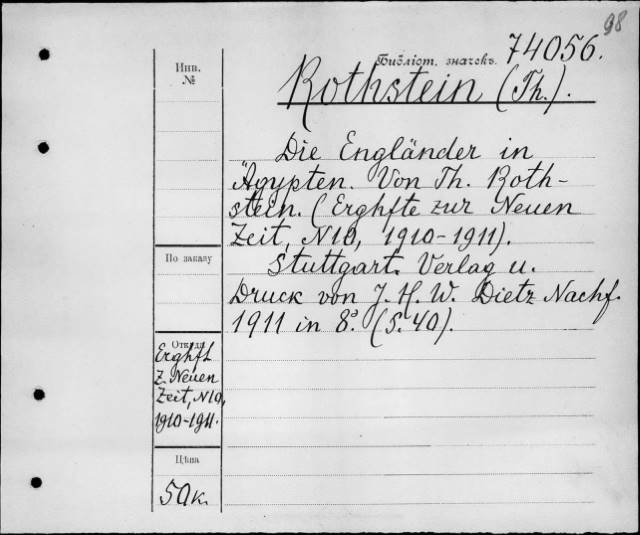 98
Библіот. значекъ. 74056.
Rothstein (Th.).
Инв.
№
Die Engländer in
Ägypten. Von Th. Roth-
stein. (Erghfte zur Neuen
Zeit, N10, 1910-1911).
Stuttgart. Verlag u.
Druck von J. H. W. Dietz Nachf.
1911 in 8°. (S. 40).
По заказу
Откуда
Erghft
z. Neuen
Zeit, N10,
1910-1911.
Цѣна
50к.